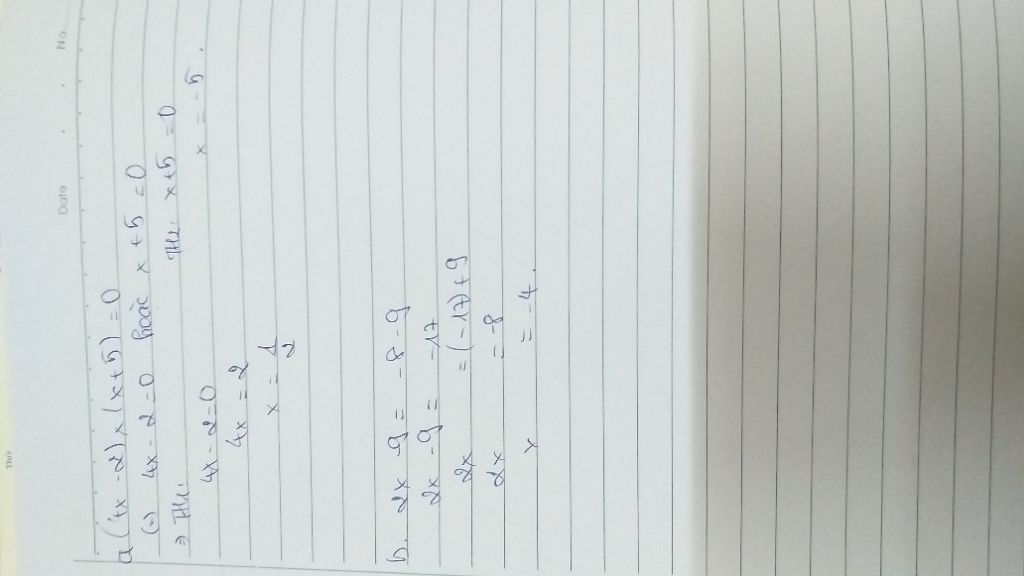 Thứ
Date No.
a (4x - 2) x (x + 5) = 0
(=) 4x - 2 = 0 hoặc x + 5 = 0
=> TH1. TH2. x + 5 = 0
4x - 2 = 0 x = -5.
4x = 2
x = 1/2
b. 2x - 9 = -8 - 9
2x - 9 = -17
2x = (-17) + 9
2x = -8
x = -4.